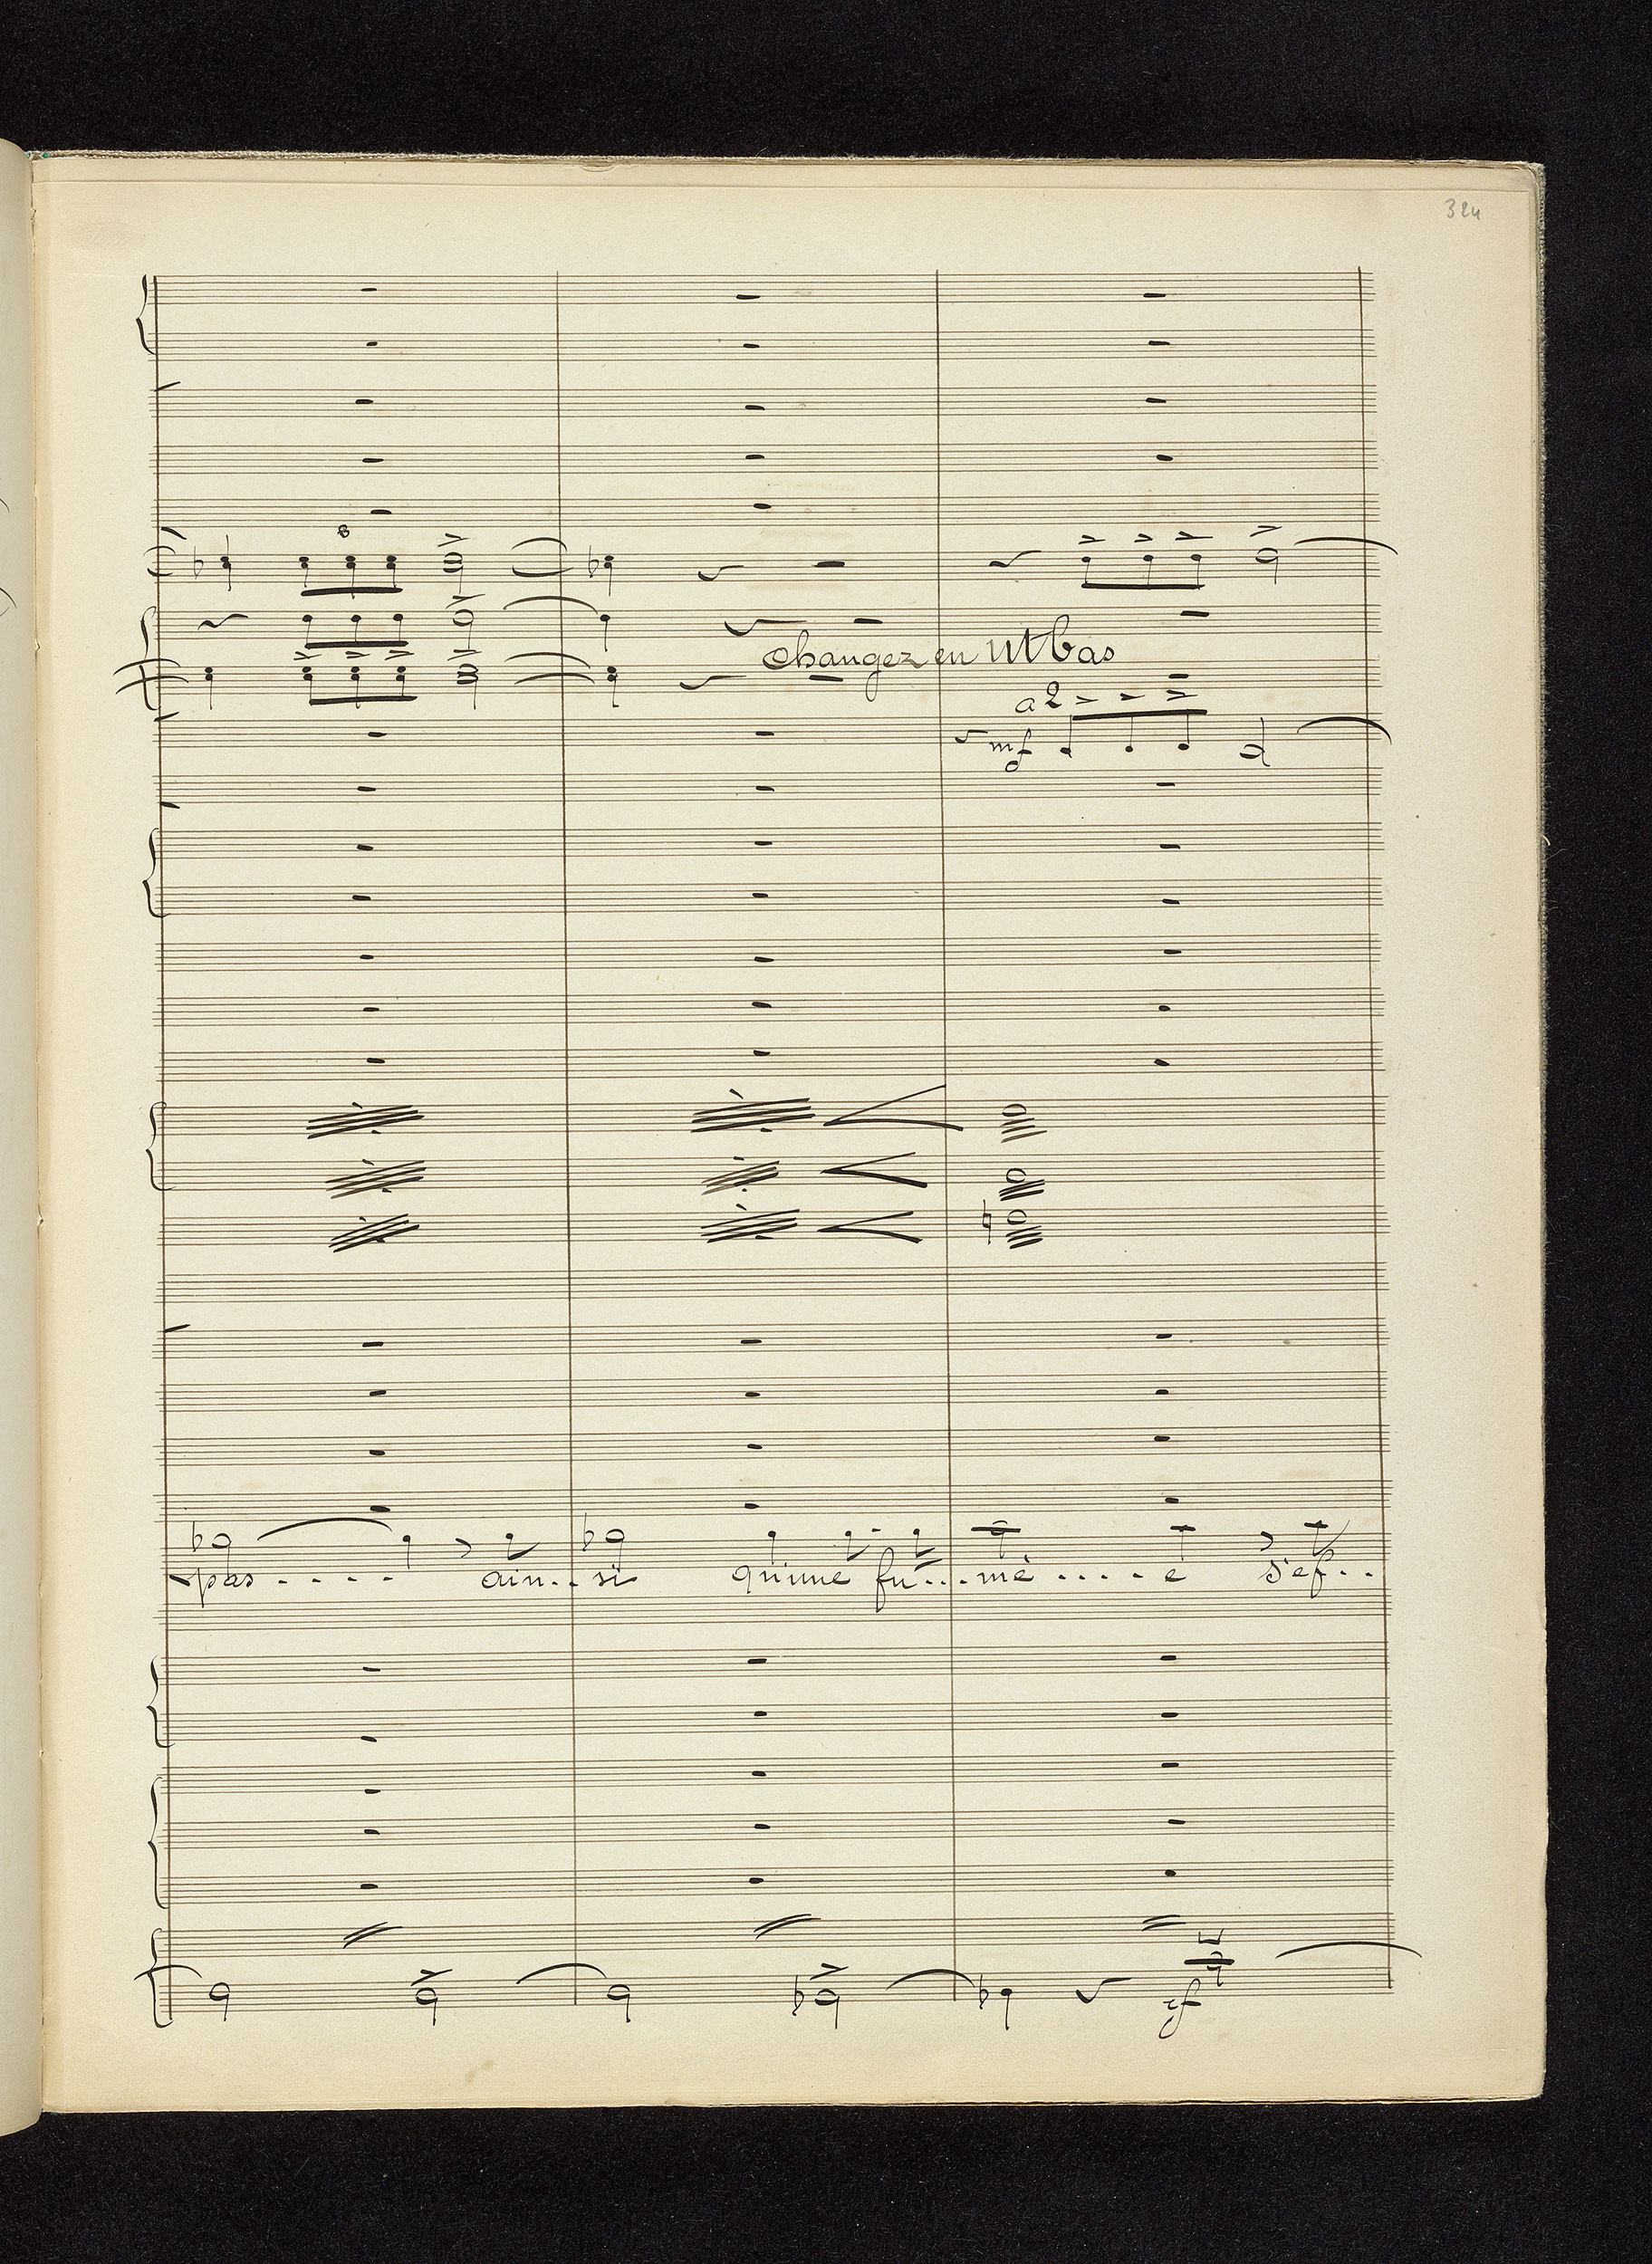 324
3
changez en Ut bas
a2
mf
pas . . . . . ain . . si qu'une fu . . . mé . . . . . e s'ef . .
sf